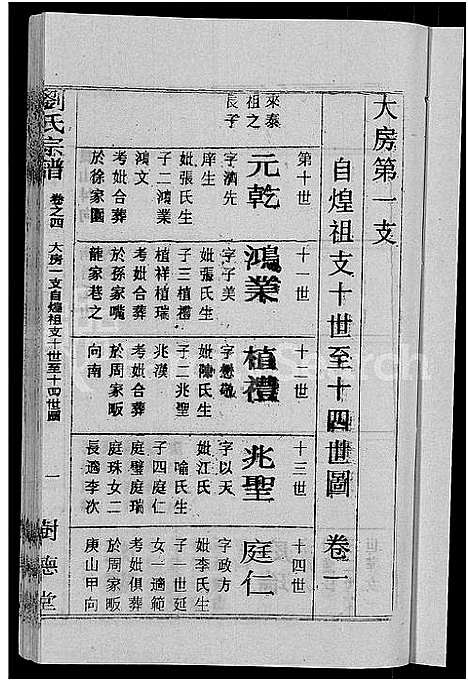 大房第一支
自煌祖支十世至十四世圖 卷一
第十世
元乾
來泰
祖之
長子
字済先
庠生
妣張氏生
子二鴻業
鴻文
考妣合葬
於徐家園
十一世
鴻業
字子美
妣張氏生
子三植禮
植祥植瑞
考妣合葬
於孫家嘴
龍家巷之
十二世
植禮
字懋敬
妣陳氏生
子二兆聖
兆漢
考妣合葬
於周家畈
向南
十三世
兆聖
字以天
妣江氏
喻氏生
子四庭仁
庭璧庭瑞
庭珠女二
長適李次
十四世
庭仁
字政方
妣李氏生
子一世延
女一適範
考妣俱葬
於周家畈
庚山甲向
劉氏宗譜 卷之四 大房一支自煌祖支十世至十四世圖 一 樹德堂